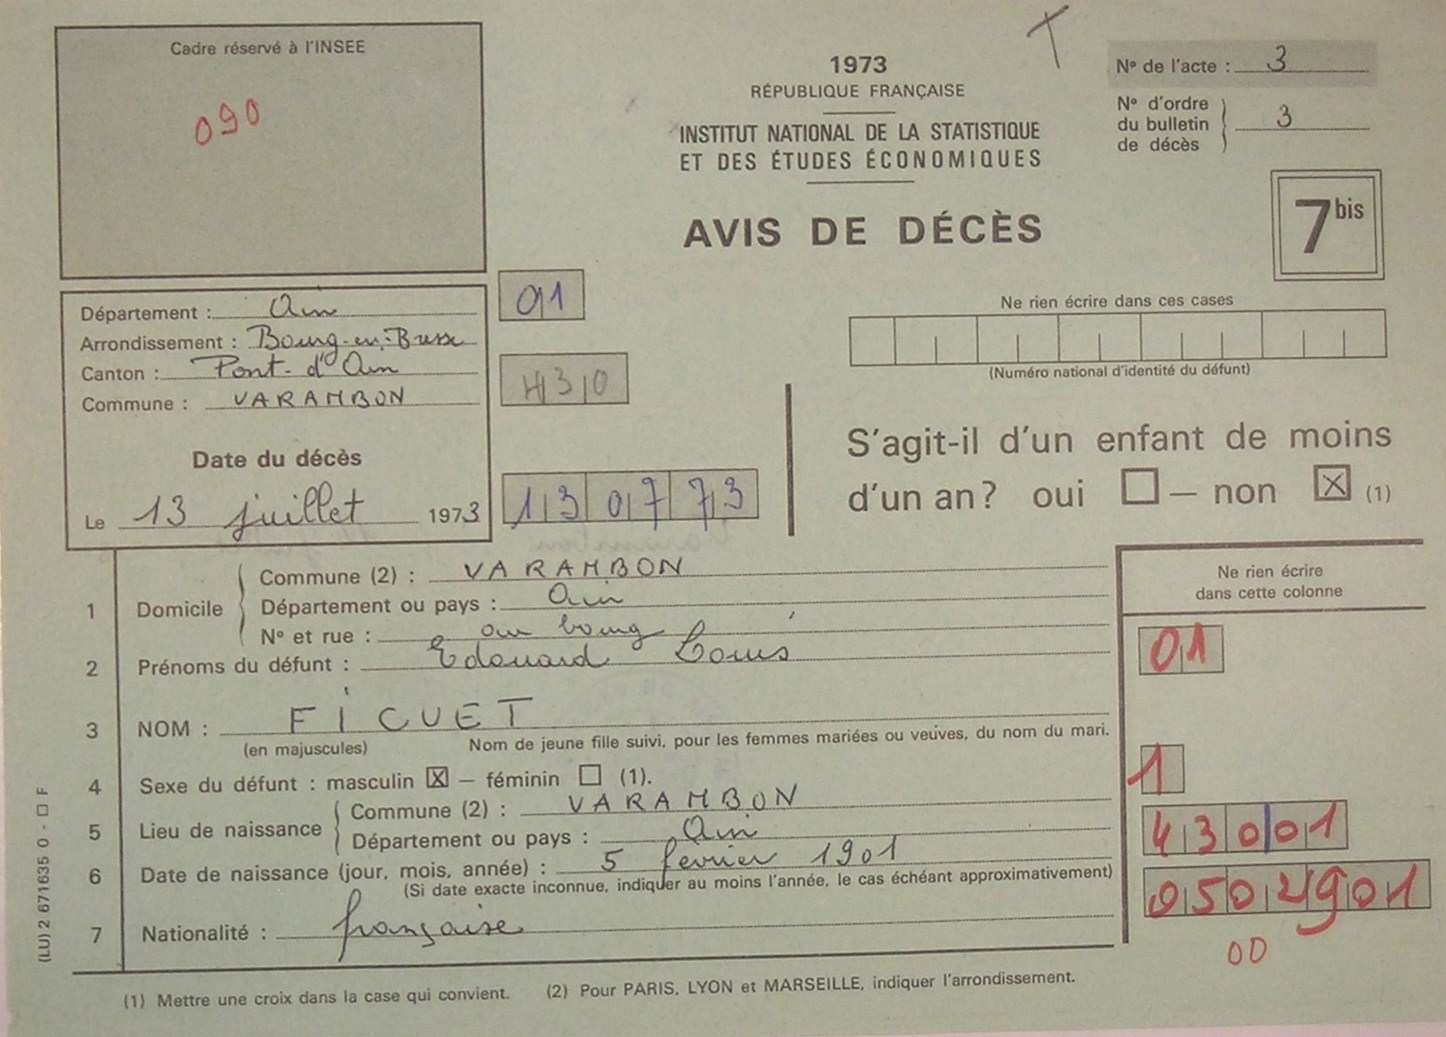 Cadre réservé à l'INSEE
090
1973
RÉPUBLIQUE FRANÇAISE
INSTITUT NATIONAL DE LA STATISTIQUE
ET DES ÉTUDES ÉCONOMIQUES
AVIS DE DÉCÈS
T
Nº de l'acte : 3
Nº d'ordre
du bulletin
de décès
3
7 bis
Ne rien écrire dans ces cases
(Numéro national d'identité du défunt)
Département : Ain
01
Arrondissement : Bourg-en-Bresse
Canton : Pont-d'Ain
430
Commune : VARAMBON
Date du décès
Le 13 juillet 1973
130773
S'agit-il d'un enfant de moins
d'un an? oui — non X (1)
Ne rien écrire
dans cette colonne
1 Domicile
Commune (2) : VARAMBON
Département ou pays : Ain
Nº et rue : au bourg
01
2 Prénoms du défunt : Edouard Louis
3 NOM : FICUET
(en majuscules) Nom de jeune fille suivi, pour les femmes mariées ou veuves, du nom du mari.
4 Sexe du défunt : masculin X — féminin (1).
1
5 Lieu de naissance
Commune (2) : VARAMBON
Département ou pays : Ain
43001
6 Date de naissance (jour, mois, année) : 5 février 1901
(Si date exacte inconnue, indiquer au moins l'année, le cas échéant approximativement)
0502901
7 Nationalité : française
00
(1) Mettre une croix dans la case qui convient. (2) Pour PARIS, LYON et MARSEILLE, indiquer l'arrondissement.
(LU) 2 671635 0 - □ F